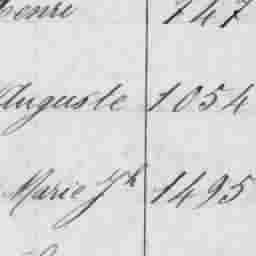 Henri 147
Auguste 1054
Marie Jh 1495